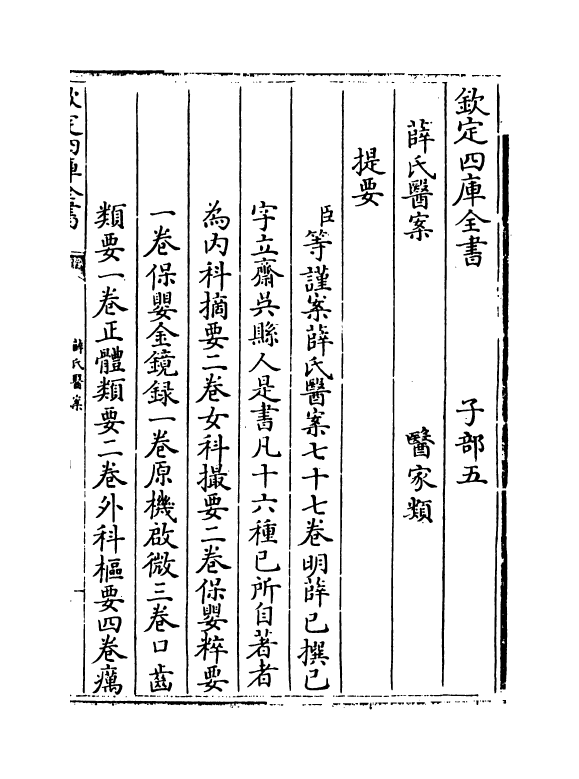 欽定四庫全書　子部五
薛氏醫案　醫家類
提要
臣等謹案薛氏醫案七十七卷明薛己撰己
字立齋吳縣人是書凡十六種己所自著者
為內科摘要二卷女科撮要二卷保嬰粹要
一卷保嬰金鏡録一卷原機啟微三卷口齒
類要一卷正體類要二卷外科樞要四卷癘
欽定四庫全書
薛氏醫案